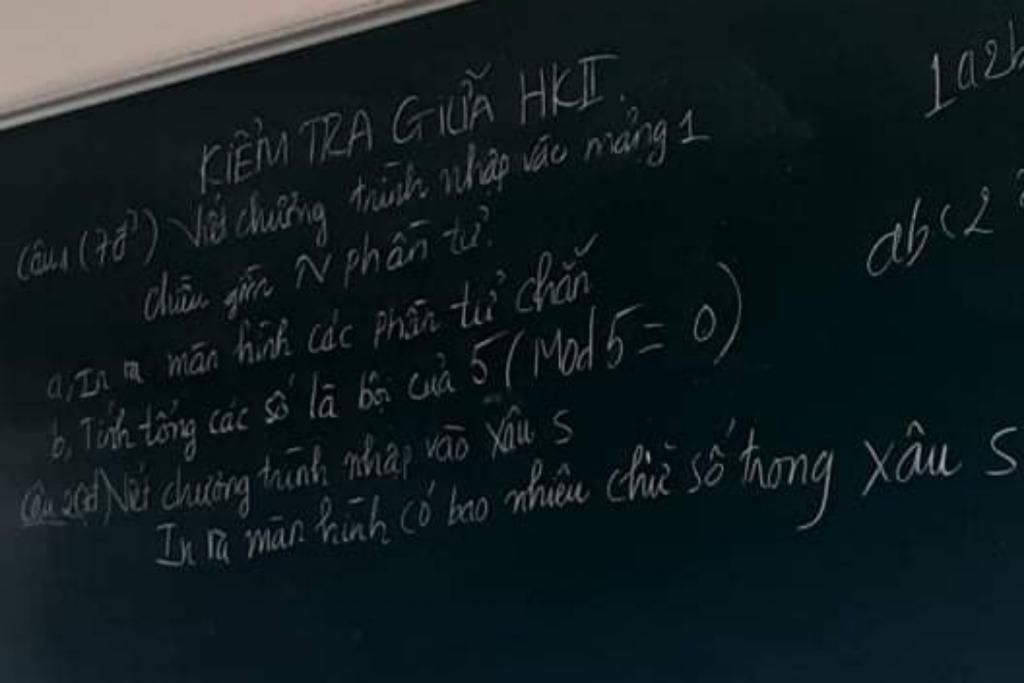 KIỂM TRA GIỮA HKII.
Câu 1 (7đ) Viết chương trình nhập vào mảng 1
chiều gồm N phần tử.
a, In ra màn hình các phần tử chẵn
b, Tính tổng các số là bội của 5 (Mod 5 = 0)
Câu 2 Viết chương trình nhập vào xâu S
In ra màn hình có bao nhiêu chữ số trong xâu S
1a2b
ab(2